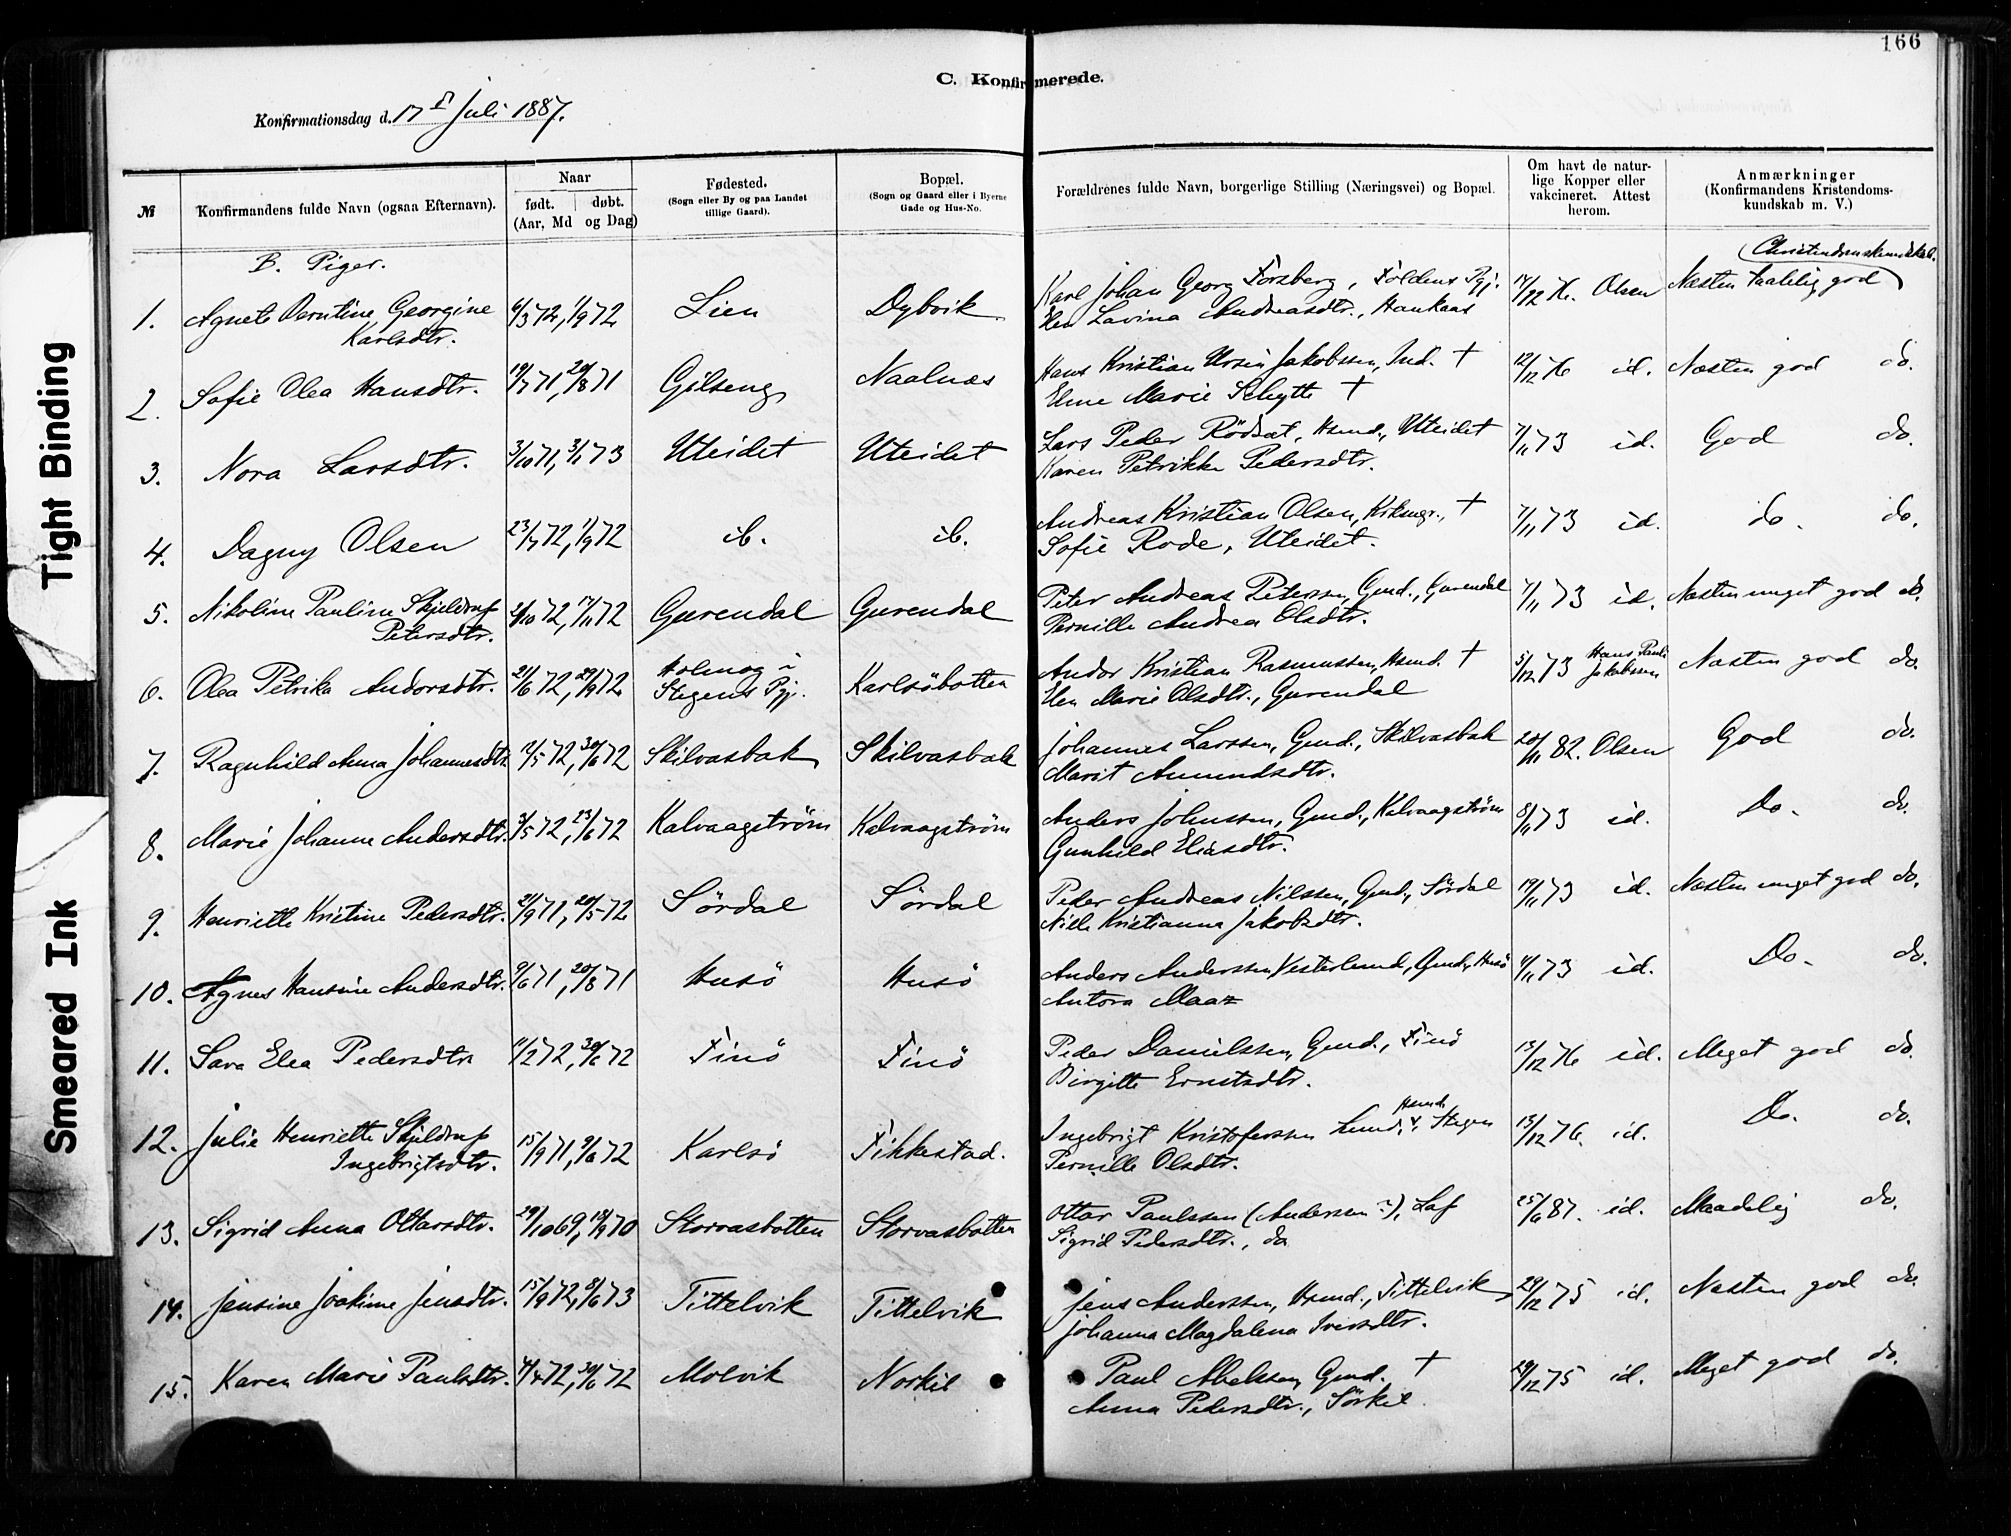 166
C. Konfirmerede.
Konfirmationsdag d. 17d Juli 1887.
№
Konfirmandens fulde Navn (ogsaa Efternavn).
Naar
født. døbt.
(Aar, Md og Dag)
Fødested.
(Sogn eller By og paa Landet
tillige Gaard).
Bopæl.
(Sogn og Gaard eller i Byerne
Gade og Hus-No.
Forældrenes fulde Navn, borgerlige Stilling (Næringsvei) og Bopæl.
Om havt de natur-
lige Kopper eller
vakcineret. Attest
herom.
Anmærkninger
(Konfirmandens Kristendoms-
kundskab m. V.)
B. Piger.
Christendomskundskab.
1. Agnete Berntine Georgine 6/3 72, 1/9 72 Lien Dybvik Karl Johan Georg Forsberg, Foldens Pgj. 14/12 76. Olsen Næsten taalelig god
Karlsdtr. Elen Lavina Andreasdtr., Haukaas
2. Sofie Olea Hansdtr. 19/7 71, 20/8 71 Gilseng Naalnæs Hans Kristian Ursin Jakobssen, Ind. † 12/12 76 id. Næsten god do.
Elene Marie Schytte †
3. Nora Larsdtr. 3/10 71, 3/1 73 Uteidet Uteidet Lars Peder Rödsat, Hsmd., Uteidet 7/11 73 id. God do.
Karen Petrikke Pedersdtr.
4. Dagny Olsen 23/7 72, 1/9 72 ib. ib. Andreas Kristian Olsen, Krksngr., † 7/11 73 id. do. do.
Sofie Rode, Uteidet.
5. Nikoline Pauline Skjeldrup 2/10 72, 17/11 72 Gurendal Gurendal Peter Andreas Peterssen, Gmd., Gurendal 7/11 73 id. Næsten meget god do.
Petersdtr. Pernille Andrea Olsdtr.
6. Olea Petrika Andorsdtr. 21/6 72, 29/9 72 Holmog i Karlsöbotten Andor Kristian Rasmussen, Hsmd. † 5/12 73 Hans Pauli Næsten god do.
Stegens Pgj. Elen Marie Olsdtr., Gurendal Jakobssen
7. Ragnhild Anna Johannesdtr. 12/5 72, 30/6 72 Skilvasbak Skilvasbak Johannes Larssen, Gmd., Skilvasbak 20/11 82. Olsen God do.
Marit Amundsdtr.
8. Marie Johanne Andersdtr. 3/5 72, 23/6 72 Kalvaagström Kalvaagström Anders Johnssen, Gmd., Kalvaagström 8/11 73 id. Do. do.
Gunhild Eliasdtr.
9. Henriette Kristine Pedersdtr. 21/9 71, 20/5 72 Sördal Sördal Peder Andreas Nilssen, Gmd., Sördal 19/11 73 id. Næsten meget god do.
Nille Kristianna Jakobsdtr.
10. Agnes Hansine Andersdtr. 9/6 71, 20/8 71 Husö Husö Anders Anderssen Vesterlund, Gmd., Husö 4/11 73 id. Do. do.
Antora Maaz
11. Sara Elea Pedersdtr. 11/2 72, 30/6 72 Finö Finö Peder Danielssen, Gmd., Finö 13/12 76 id. Meget god do.
Birgitte Ernstsdtr.
12. Julie Henriette Skjeldrup 15/9 71, 9/6 72 Karlsö Fikkestad. Ingebrigt Kristoferssen Lund, Hsmd. v. Stegen 13/12 76. id. Do. do.
Ingebrigtsdtr. Pernille Olsdtr.
13. Sigrid Anna Ottarsdtr. 29/10 69, 18/9 70 Storvasbotten Storvasbotten Ottar Paulssen (Andersen?), Laf 25/6 87. id. Maadelig do.
Sigrid Pedersdtr., do
14. Jensine Joakime Jensdtr. 15/9 72, 8/6 73 Tittelvik Tittelvik Jens Anderssen, Hsmd., Tittelvik 29/12 75 id. Næsten god do.
Johanna Magdalena Iversdtr.
15. Karen Marie Paulsdtr. 4/4 72, 30/6 72 Molvik Norkil Paul Abelssen, Gmd. † 29/12 75 id. Meget god do.
Anna Pedersdtr., Sörkil
Tight Binding
Smeared Ink